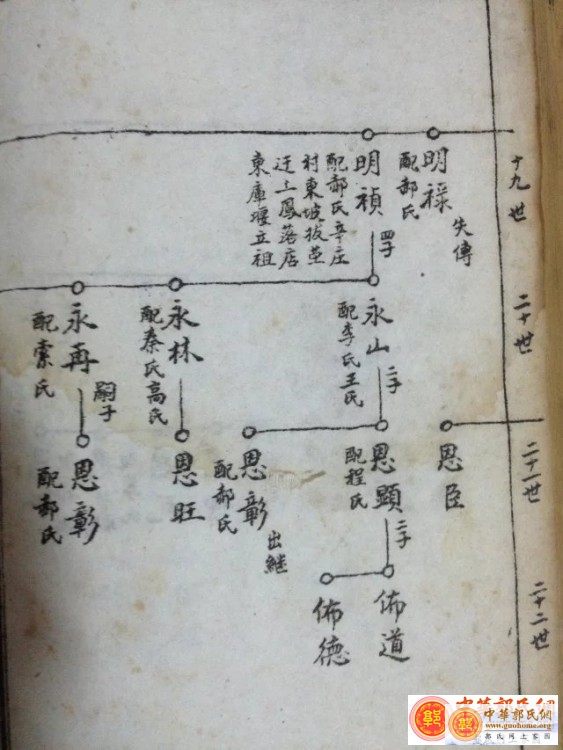 十九世
明祿
配郝氏
失傳
明禎
配郝氏辛庄
村東坡拔茔
迁土鳳落店
東庫堰立祖
四子
二十世
永山
配李氏王氏
二子
永林
配秦氏高氏
永再
配索氏
嗣子
二十一世
恩臣
恩顯
配程氏
二子
恩彰
配郝氏
出継
恩旺
恩彰
配郝氏
二十二世
佈道
佈德
中華郭氏網
www.guohome.org
郭氏网上家园